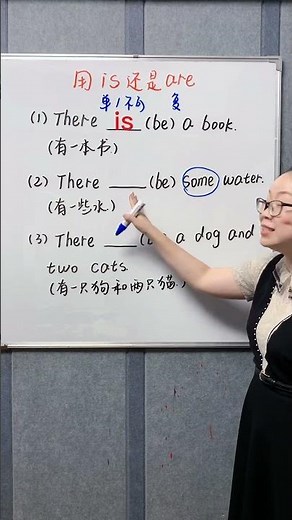 用 is 还是 are
单/不可 复
(1) There is (be) a book.
(有一本书)
(2) There ____ (be) some water.
(有一些水)
(3) There ____ a dog and
two cats
(有一只狗和两只猫.)